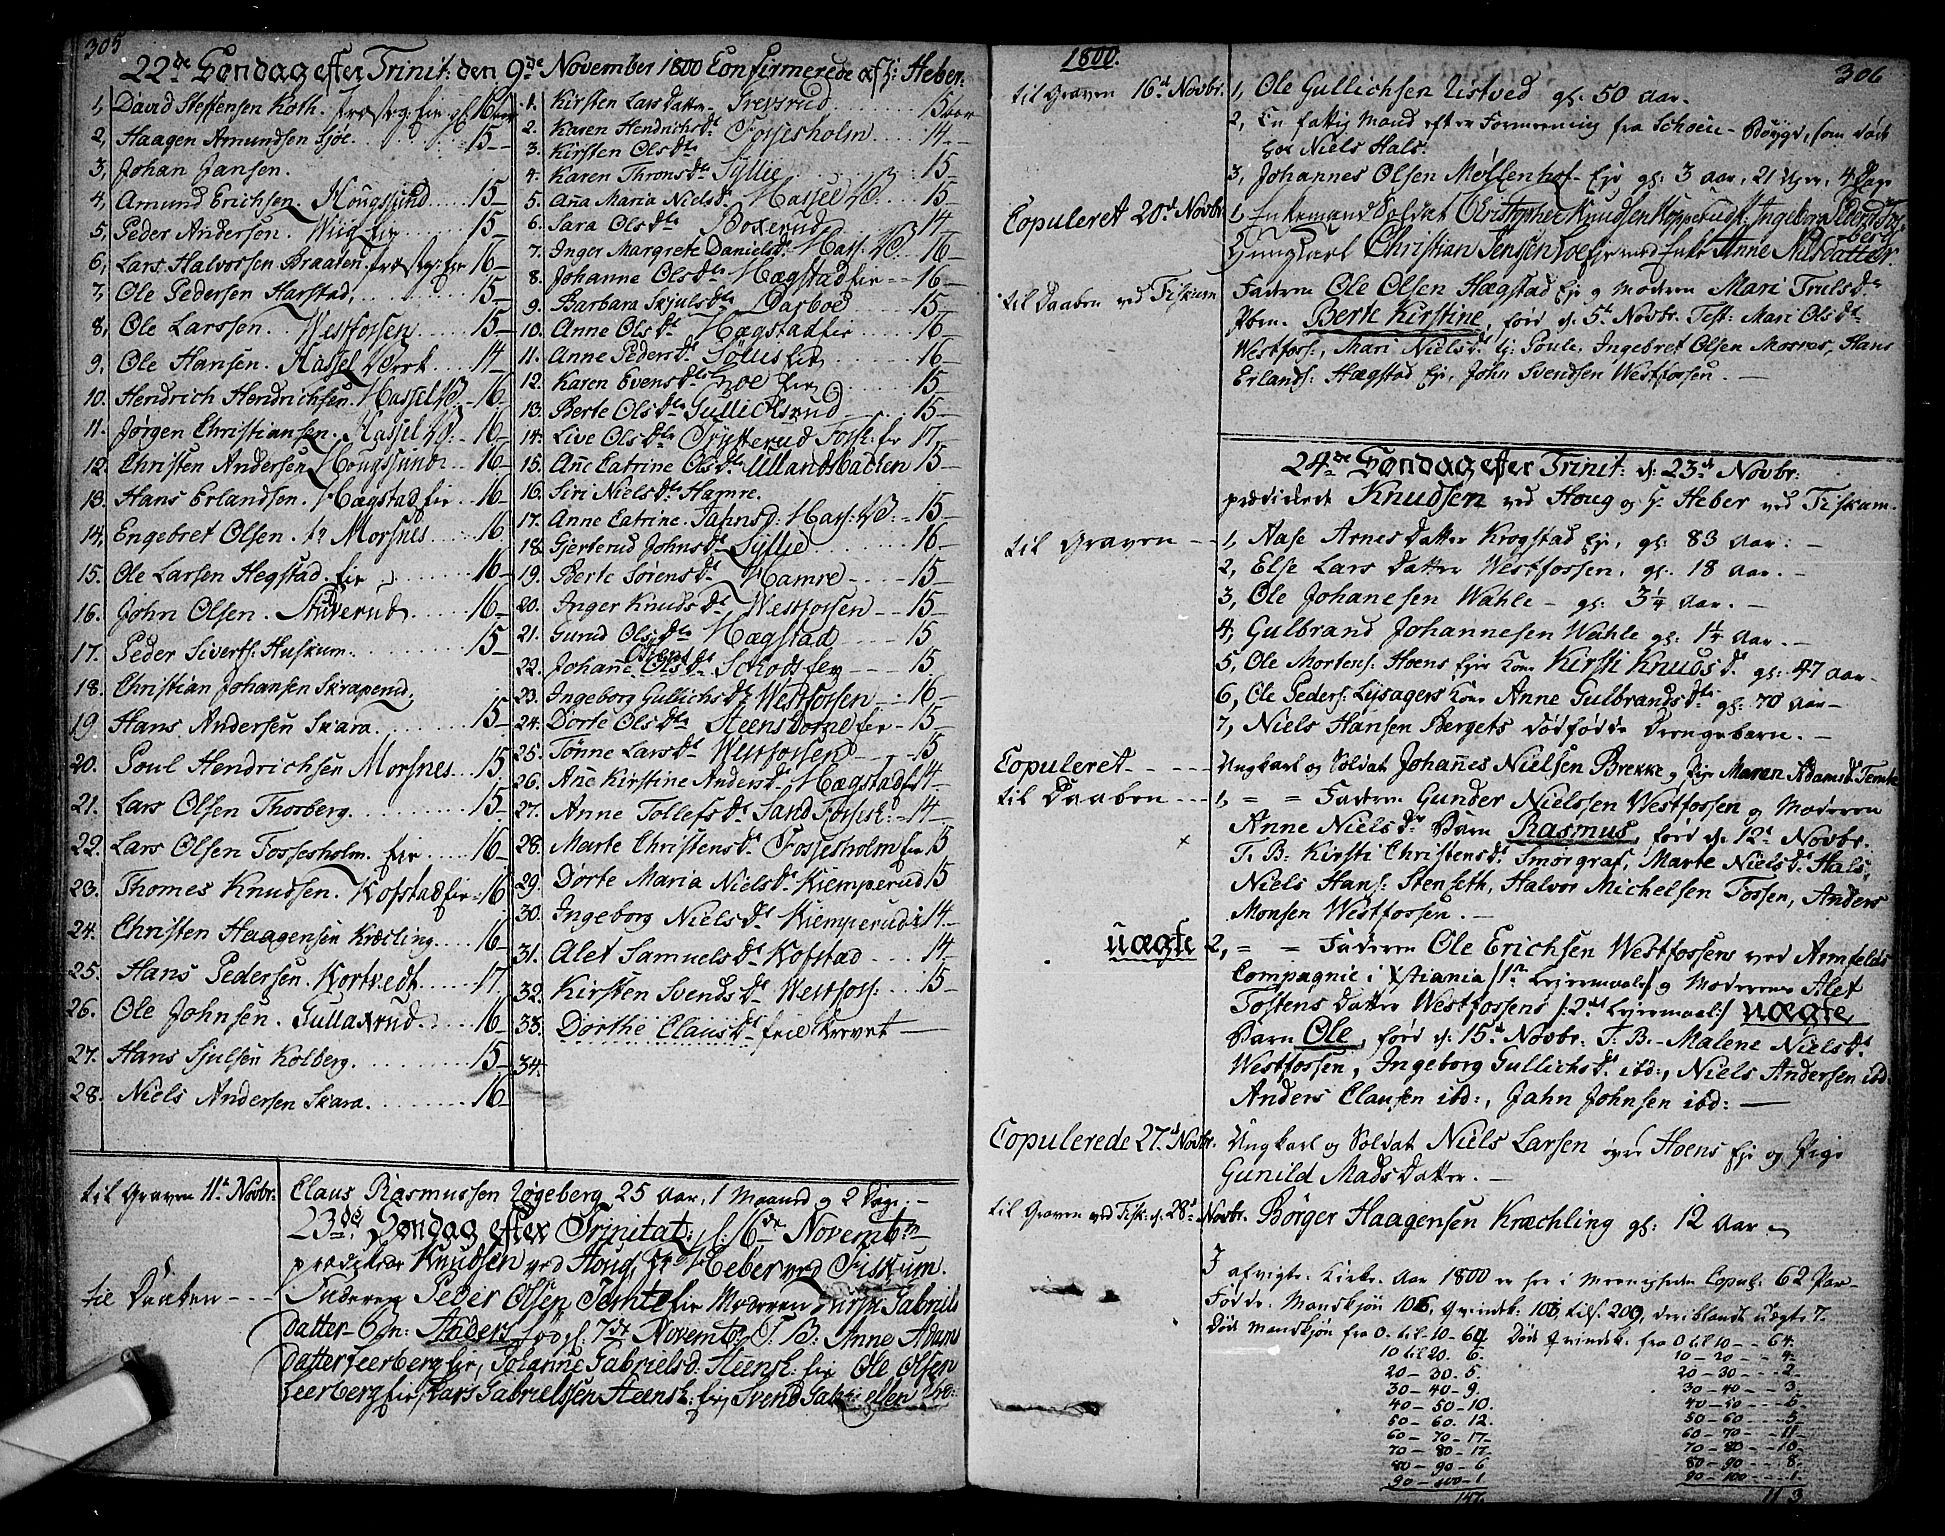 305
22de Søndag efter Trinit: den 9de November 1800 Confirmerede af H: Heber.
1, David Steffensen Koth. Præsteg: eie gl. 16 aar
2, Haagen Amundsen Sjøe 15
3, Johan Jansen.
4, Amund Erichsen. Hougsund 15
5, Peder Andersen. Wiig Eie 15
6, Lars Halvorsen Braaten. Præsteg: eie 16
7, Ole Pedersen Harstad, 15
8, Ole Larssen. Westfossen 15
9, Ole Hansen. Hassel Værk 14
10. Hendrich Hendrichsen. Hassel V. 16
11. Jørgen Christiansen. Hassel V: 16
12. Christen Andersen Hougsund 16
13. Hans Erlandsen. Hægstad eie 16
14, Engebret Olsen. Morsnes 16
15. Ole Larsen Hegstad. eie 16
16. John Olsen. Stuverud 16
17. Peder Siverts: Huskum 15
18. Christian Johansen Skraperud,
19. Hans Andersen Skara 15
20. Poul Hendrichsen Morsnes 15
21. Lars Olsen Thorberg 15
22. Lars Olsen Fossesholm. eie 16
23. Thomes Knudsen. Kofstad eie 16
24. Christen Haagensen Krækling 16
25. Hans Pedersen Kortvedt 17
26. Ole Johnsen. Gullaxrud 16
27. Hans Sjulsen Kolberg 15
28. Niels Andersen Skara 16
1. Kirsten Lars datter Trevsrud 15 aar
2. Karen Hendrichs Dt Fossesholm 14
3. Kirsten Ols Dt
4. Karen Throns Dt Syllie 15
5. Aña Maria Niels Dt Hassel V: 15
6. Sara Ols Dt Boxerud 14
7. Inger Margrete Daniels Dt Hass: V 16
8. Johanne Ols Dt Hægstad eie 16
9. Barbara Skjuls Dt Darboe 15
10. Anne Ols Dt Hægstad eie 16
11. Anne Peders Dt 16
12. Karen Evens Dt Loe Eie 15
13. Berte Ols Dt Gullichsrud 15
14. Live Ols Dt Frytterud Foss: eie 17
15. Añe Catrine Ols Dt Ullandsbatten 15
16. Siri Niels Dt Hamre.
17. Anne Catrine Jahns D: Hass: V: 15
18. Gjertrud Johns Dt Syllie 16
19. Berte Sørens Dt Hamre 15
20. Inger Knuds Dt Westfossen 15
21. Gunild Ols Dt Hægstad 15
22. Johañe Ols Dt Schodts eie 15
23. Ingeborg Gullichs Dt Westfossen 16
24. Dorte Ols Dt Steens eie 15
25. Tønne Lars Dt Westfossen 15
26. Añe Kirstine Anders Dt Hægstad eie 14
27. Anne Tollefs Dt Sand Fosses: 14
28. Marte Christens Dt Fossesholm eie 15
29. Dorte Maria Niels Dt Kiemperud 15
30. Ingeborg Niels Dt Kiemperud 14
31. Alet Samuels Dt Kofstad 14
32. Kirsten Svends Dt Westfoss: 15
33. Dorthe Claus Dt
34.
til Graven 11t Novbr. Claus Rasmussen Røgeberg 25 Aar, 1 Maaned og 2 Dage.
23de Søndag efter Trinitat: d. 16de Novembr
prædikede Knudsen ved Houg, H: Heber ved Fiskum.
til Daaben Faderen Peder Olsen Temte eie Moderen Kirsti Gabriels
datter Bn: Anders, fød d: 7de Novembr, T. B: Anne Adams
datter Leerberg Eie, Johanne Gabrielsd. Steensh: eie Ole Olsen
Leerberg Eie, Lars Gabrielssen Steensh: eie, Svend ibd:
1800. 306
til Graven 16d Novbr. 1, Ole Gullichsen Ustved gl: 50 Aar.
2, En fattig Mand efter Formeening fra Schoeu-Bøygd, som døde
hos Niels Hals.
3, Johannes Olsen Møllenhof Eje gl: 3 Aar, 21 Uger, 4 Dage
Copuleret 20d Novbr 1, Enkemand Soldat Christopher Knudsen
Ungkarl Christian Jensen Loe Eje med Enke Anne Nilsdatter.
til Daaben ved Fiskum Faderen Ole Olsen Hægstad Eje og Moderen Mari Truls Dr
Børn. Berte Kirstine, fød d. 5t Novbr. Test: Mari Ols Dt
Westfoss:, Mari Niels Dt Ingebret Olsen Morsnes, Hans
Erlands: Hægstad Eje, John Svendsen Westfossen.
24de Søndag efter Trinit: d: 23d Novbr:
prædikede Knudsen ved Houg og H: Heber ved Fiskum.
til Graven 1, Aase Arnes Datter Krogstad Eje, gl: 83 Aar.
2, Else Lars Datter Westfossen, gl: 18 Aar.
3, Ole Johanesen Wahle gl: 3¼ Aar.
4, Gulbrand Johannesen Wahle gl: 1¼ Aar.
5, Ole Mortens: Hoens Ejes Kone Kirsti Knuds Dt gl: 47 Aar
6, Ole Peders: Lysagers Kone Anne Gulbrands Dt gl: 70 Aar
7, Niels Hansen Bergets dødfødde Drengebarn.
Copuleret Ungkarl og Soldat Johañes Nielsen Brekke og Pige Maren Adams Dt Temte
til Daaben 1, = = Faderen Gunder Nielssen Westfossen og Moderen
Anne Niels Dr Barn Rasmus, fød d. 12d Novbr.
T. B: Kirsti Christens Dt Smørgraf, Marte Niels Dt Hals,
Niels Hans: Stenseth, Halvor Michelsen Fossen, Anders
Monsen Westfossen.
uægte 2, = = Faderen Ole Erichsen Westfossens ved Armfelds
Compagnie i Xstiania /:1te Leiermaal:/ og Moderen Alet
Tostens Datter Westfossens /:2det Leiermaal:/ uægte
Barn Ole, fød d: 15d Novbr: T. B. Malene Niels Dt
Westfossen, Ingeborg Gullichs Dt ibd:, Niels Andersen ibd:
Anders Clausen ibd:, Jahn Johnsen ibd:
Copulerede 27d Novbr. Ungkarl og Soldat Niels Larsen øvre Hoens Eje og Pige
Gunild Mads Datter.
til Graven ved Fisk: d. 28d Novbr. Børger Haagensen Kræchling gl: 12 Aar
I afvigte Kirke-Aar 1800 er her i Menigheden Copul: 62 Par
Fødde Mandkjøn 106, Qvindek: 103, tils: 209, deriblandt uægte 7.
Døde Mandkjøn fra 0 til 10 - 64 Døde Qvindek: fra 0 til 10 - 64.
10 til 20. 6. 10 - 20 - 4.
20 - 30. 5. 20 - 30 - 2
30 - 40 - 9. 30 - 40 - 3
40 - 50 - 10. 40 - 50 - 6
50 - 60. 12. 50 - 60 - 5
60 - 70 - 17 60 - 70 - 11
70 - 80 - 17 70 - 80 - 10
80 - 90 - 6 80 - 90 - 8
90 - 100 - 1 90 - 100 - 1
147 113